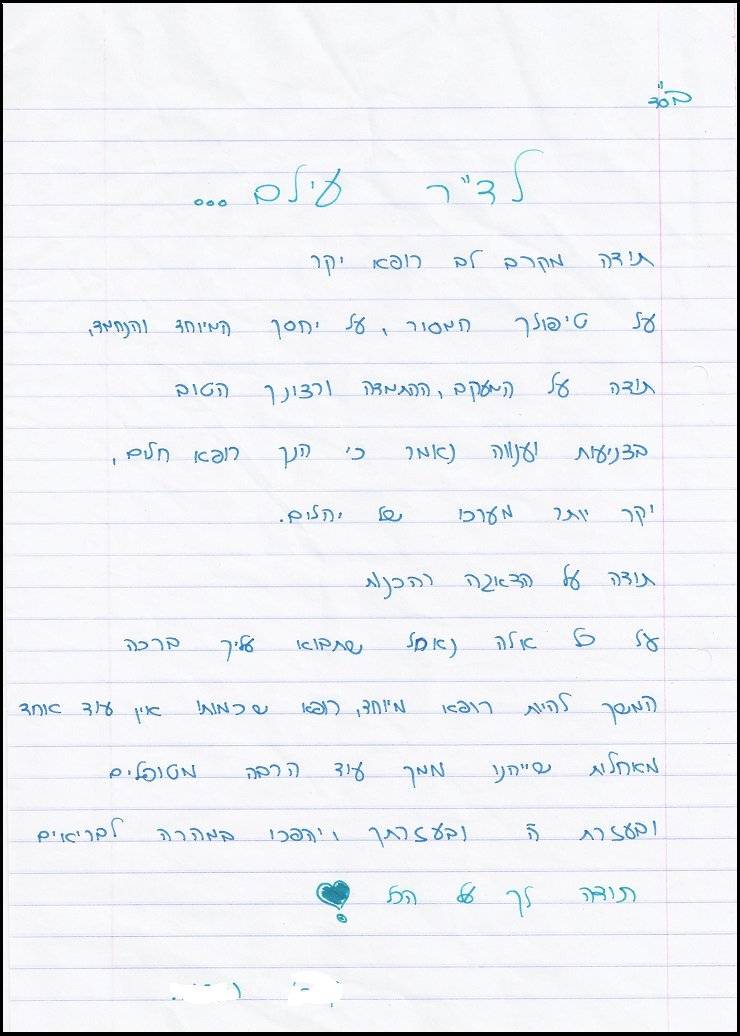 בס"ד
לד"ר עילם ...
תודה מקרב לב רופא יקר
על טיפולך המסור, על יחסך המיוחד והנחמד,
תודה על המעקב, ההתמדה ורצונך הטוב
בצניעות וענווה נאמר כי הנך רופא חלום,
יקר יותר מערכו של יהלום.
תודה על הדאגה והכנות
על כל אלה נאחל שתבוא עליך ברכה
המשך להיות רופא מיוחד, רופא שכמותו אין עוד אחד
מאחלת שייהנו ממך עוד הרבה מטופלים
ובעזרת ה' ובעזרתך ויהפכו במהרה לבריאים
תודה לך על הכל